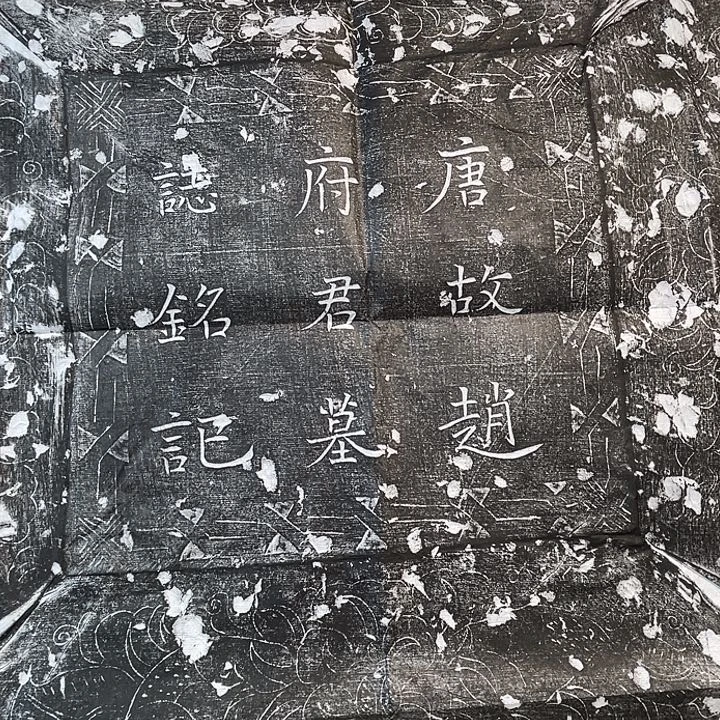 唐故趙
府君墓
誌銘記